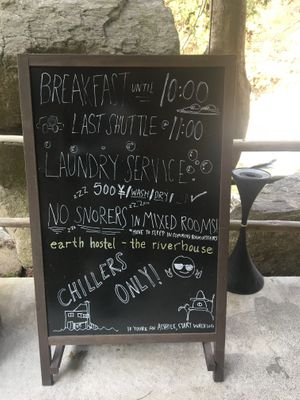 BREAKFAST UNTIL 10:00
LAST SHUTTLE @ 11:00
LAUNDRY SERVICE:
500¥/WASH/DRY/
zzz
zzz
NO SNORERS IN MIXED ROOMS!
*HAVE TO SLEEP IN COMMON ROOM
earth hostel - the riverhouse
CHILLERS
ONLY!
IF YOU'RE AN ASSHOLE, START WALKING